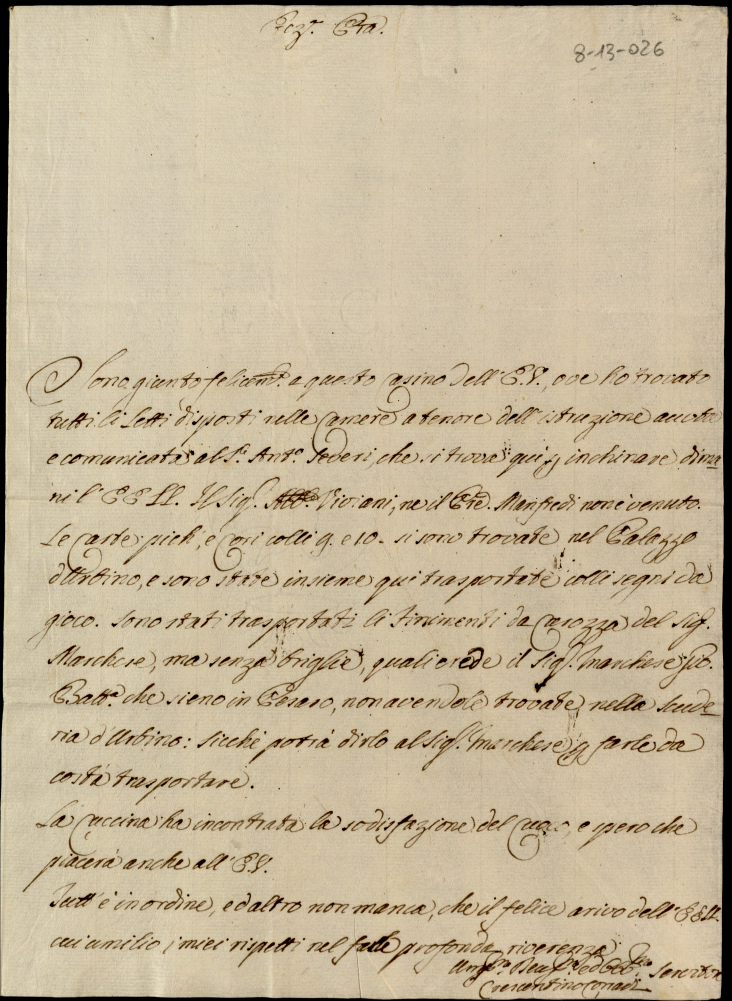 Ecza.
8-13-026
Sono giunto felicemte. a questo casino dell'E.V., ove ho trovato
tutti li Letti disposti nelle Camere a tenore dell'istruzione avuta
e comunicata al Sr. Anto. Severi, che si trova qui p inchinare dima=
ni l'EE.LL. Il Sig. Viviani, ne il Manfredi non è venuto.
Le carte, pichi, e cori colli 9. e 10. si sono trovate nel Palazzo
d'Urbino, e sono state insieme qui trasportate colli segni da
gioco. Sono stati trasportati li Finimenti da Carozza del Sig.
Marchese, ma senza briglie, quali crede il Sig. Marchese Gio.
Batta. che sieno in Pesaro, non avendole trovate nella Scude=
ria d'Urbino: sicchè potrà dirlo al Sig. Marchese p farle da
costà trasportare.
La Cuccina ha incontrata la sodisfazione del Cuoco, e spero che
piacerà anche all'E.V.
Tutt'è in ordine, ed altro non manca, che il felice arivo dell'EE.LL.
cui umilio i miei rispetti nel farle profonda riverenza
Servitore
Crescentino